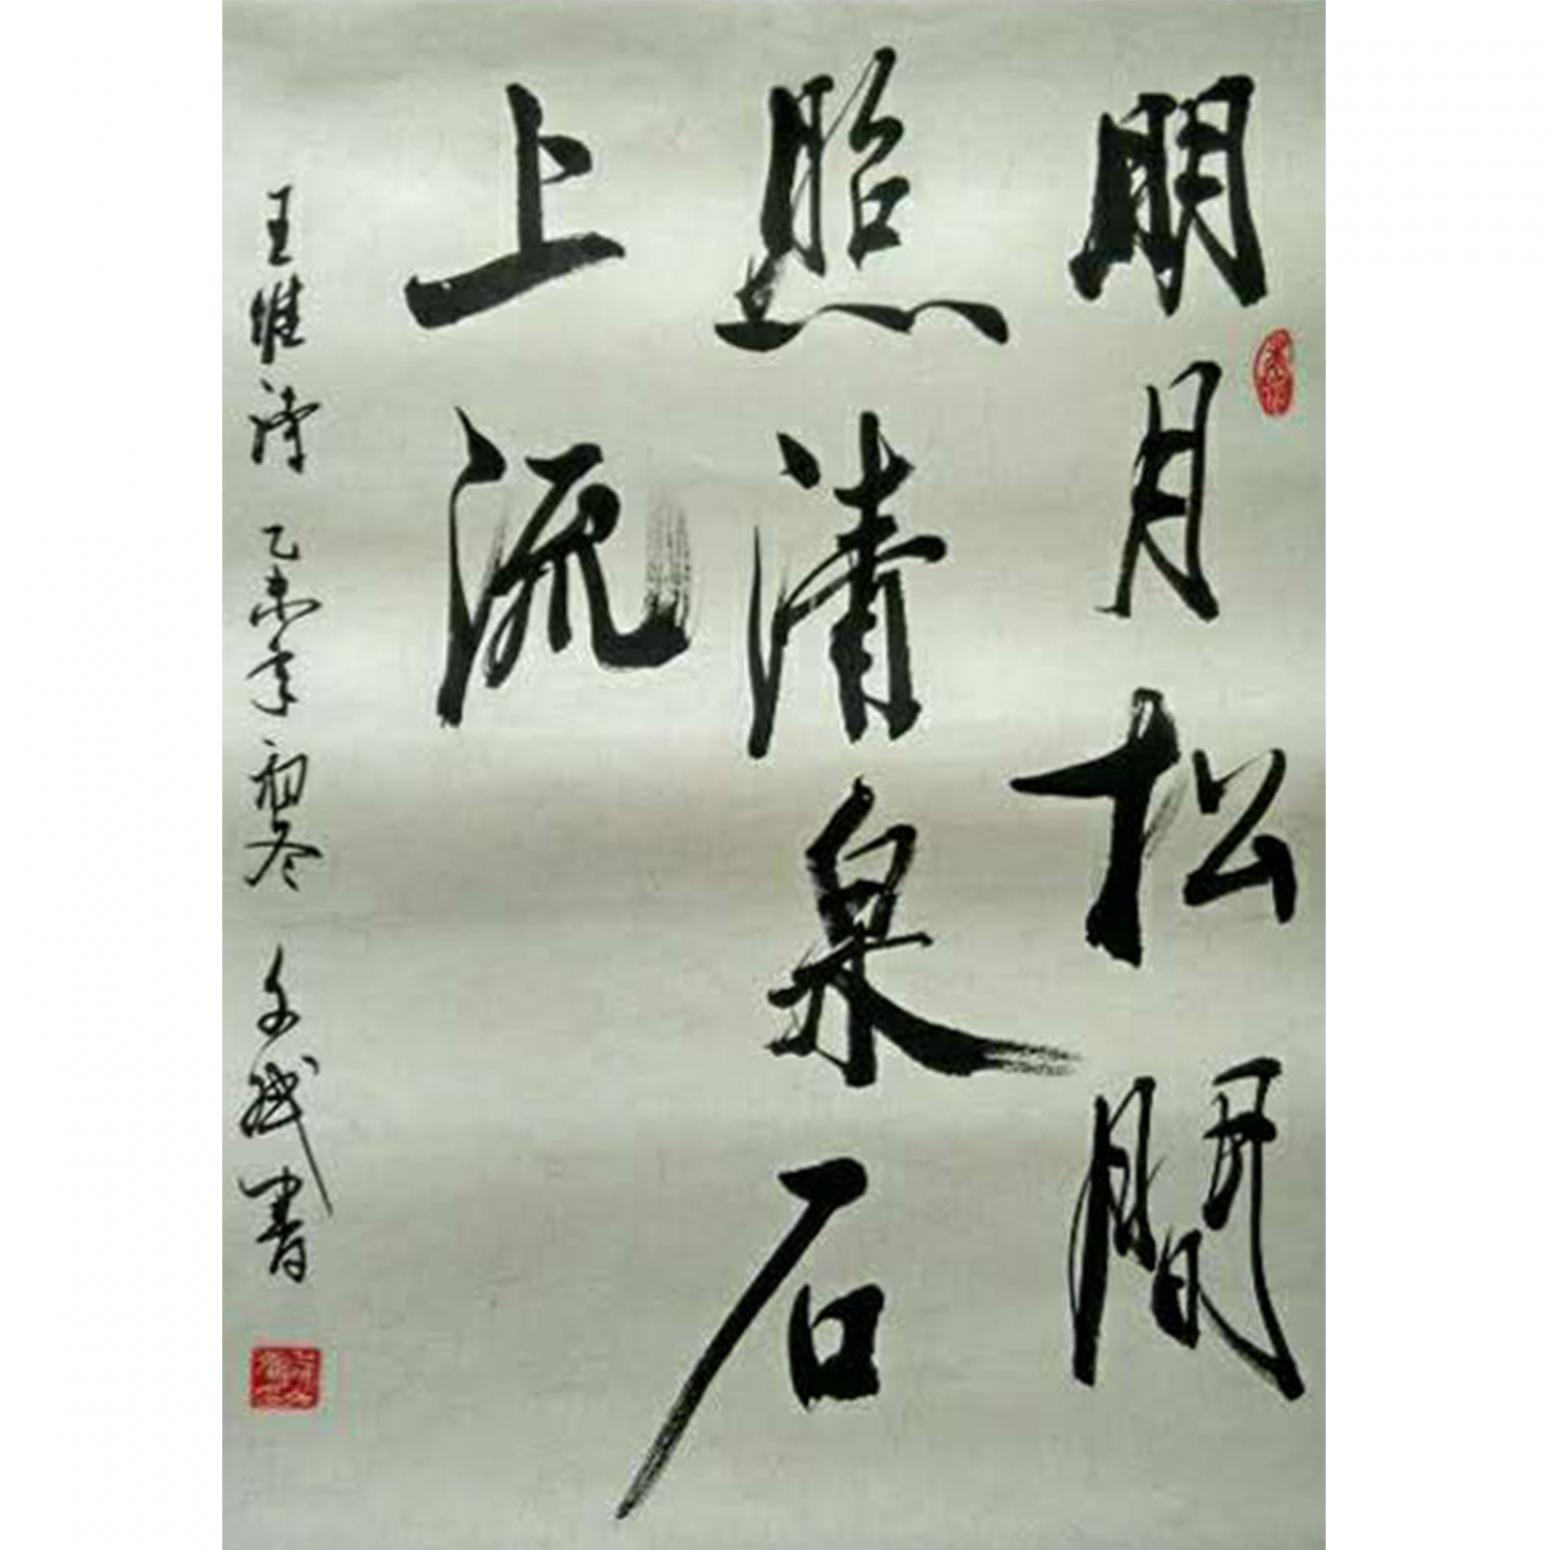 明月松間
照清泉石
上流
王維詩 乙未年初冬 文斌書